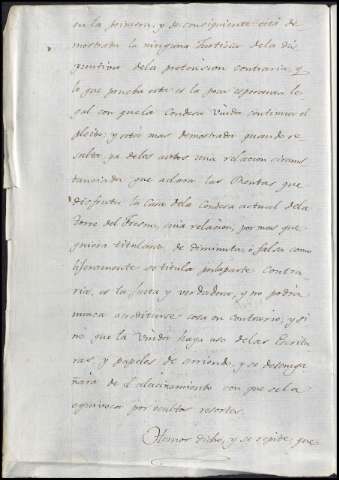 en la primera, y de consiguiente está de
mostrada la ninguna Justicia de la dis
yuntiva de la pretencion contraria, y
lo que prueba esto es la poca esperanza le
gal con que la Condesa Viuda continua el
pleito; y esto mas demostrado quando re
sulta, ya de los autos una relacion circuns
tanciada que aclara las Rentas que
disfruta la Casa de la Condesa actual de la
Torre del Fresno, cuia relacion, por mas que
quiera titularse de diminuta, ó falsa como
libremente se titula por la parte Contra
ria, es la justa y verdadera, y no podrá
nunca acreditarse cosa en contrario, y si
no que la Viuda haga uso de las Escritu
ras, y papeles de arriendo, y se desenga
ñará de el alucinamiento con que se la
equivoca por ocultos resortes.
Hemos dicho, y se repite, que